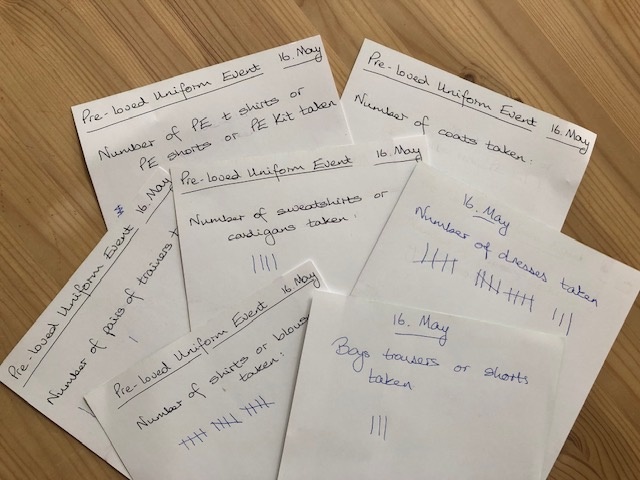 Pre-loved Uniform Event 16. May
Number of PE t shirts or
PE shorts or PE Kit taken
Pre-loved Uniform Event 16. May
Number of coats taken:
Pre-loved Uniform Event 16. May
Number of sweatshirts or
cardigans taken:
16. May
Number of dresses taken
Pre-loved Uniform Event 16. May
Number of pairs of trainers
Pre-loved Uniform Event 16. May
Number of shirts or
taken:
16. May
Boys trousers or shorts
taken